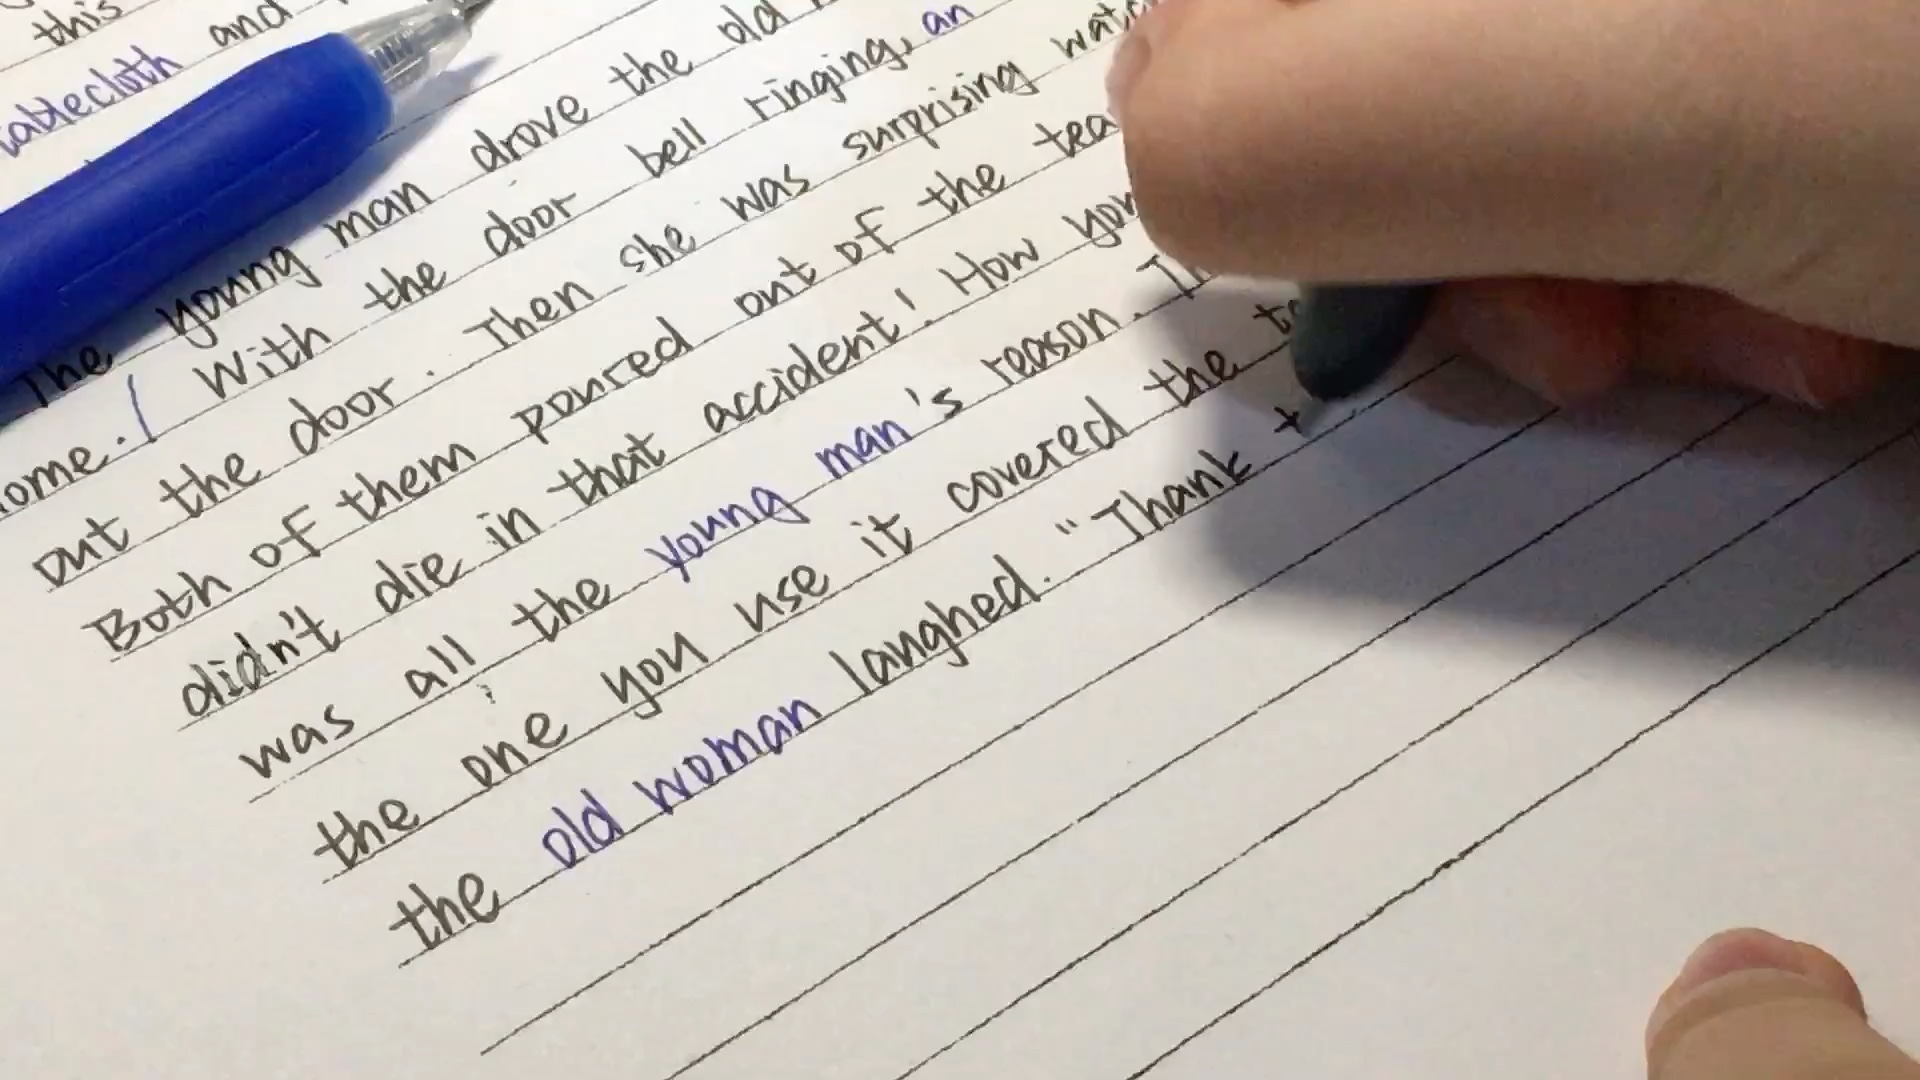 this
tablecloth and
The young man drove the old
home. / With the door bell ringing, an
out the door. Then she was surprising
Both of them poured out of the tea
didn't die in that accident! How you
was all the young man's reason.
the one you use it covered the
the old woman laughed. "Thank